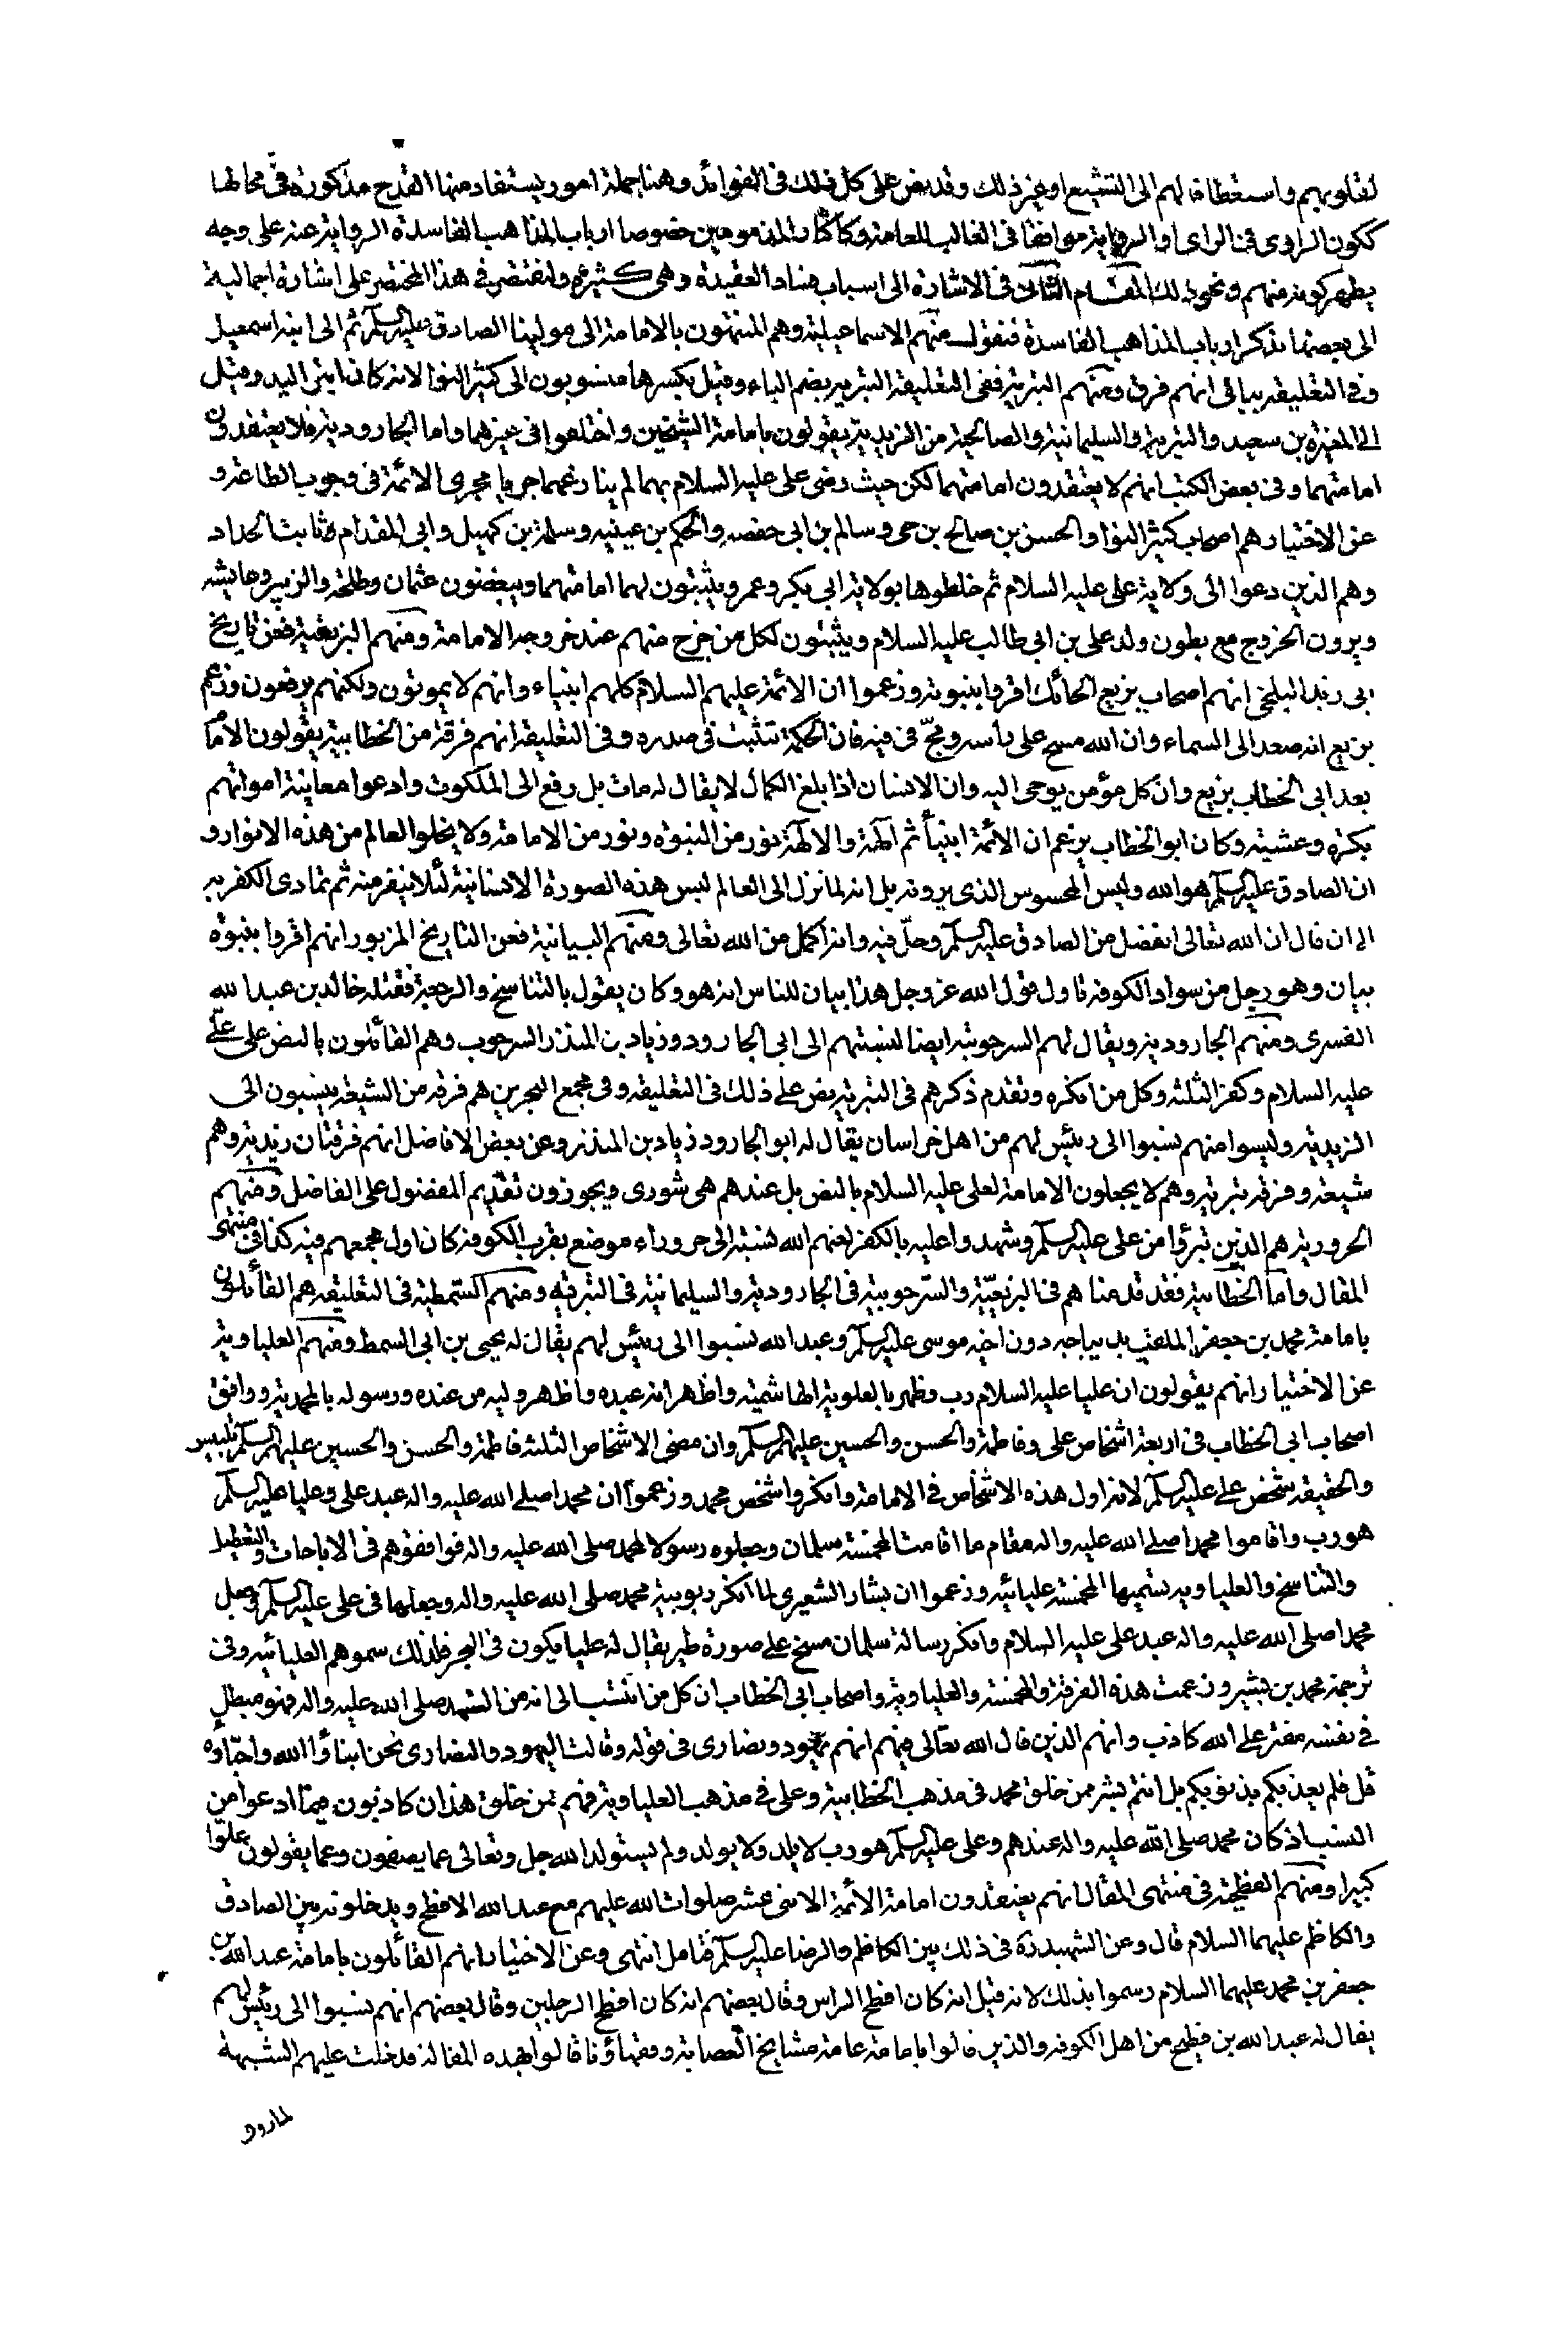 لقلوبهم واستعطافا لهم الى التشيع او غير ذلك وقد نص على كل ذلك فى الفوائد وهنا جملة امور يستفاد منها القدح مذكورة فى محالها
ككون الراوى فى الراى او الرواية موافقا فى الغالب للعامة وكاكثار المذمومين خصوصا ارباب المذاهب الفاسدة الرواية عنه على وجه
يظهر كونه منهم ونحو ذلك المقام الثانى فى الاشارة الى اسباب فساد العقيدة وهى كثيرة ولنقتصر فى هذا المختصر على اشارة اجمالية
الى بعضها بذكر ارباب المذاهب الفاسدة فنقول منهم الاسماعيلية وهم المنتهون بالامامة الى مولينا الصادق عليه السلام ثم الى ابنه اسمعيل
وفى التعليقة بباقى انهم فرق ومنهم البترية ففى التعليقة البترية بضم الباء وقيل بكسرها منسوبون الى كثير النوا لانه كان ابتر اليد وقيل
الى المغيرة بن سعيد والبترية والسليمانية والصالحية من الزيدية يقولون بامامة الشيخين واختلفوا فى غيرهما واما الجارودية فلا يعتقدون
امامتهما وفى بعض الكتب انهم لا يعتقدون امامتهما لكن حيث رضى على عليه السلام بهما لم ينازعهما جريا مجرى الائمة فى وجوب الطاعة و
عن الاختيار هم اصحاب كثير النوا والحسن بن صالح بن حى وسالم بن ابى حفصه والحكم بن عيينه وسلمة بن كهيل وابى المقدام ثابت الحداد
وهم الذين دعوا الى ولاية على عليه السلام ثم خلطوها بولاية ابى بكر وعمر ويثبتون لهما امامتهما ويبغضون عثمان وطلحة والزبير وعايشه
ويرون الخروج مع بطون ولد على بن ابى طالب عليه السلام ويثبتون لكل من خرج منهم عند خروجه الامامة ومنهم البزيعية فعن تاريخ
ابى زيد البلخى انهم اصحاب بزيع الحائك اقروا بنبوته وزعموا ان الائمة عليهم السلام كلهم انبياء وانهم لا يموتون ولكنهم يرفعون وزعم
بزيع انه صعد الى السماء وان الله مسح على راسه ومج فى فيه فان الحكمة تثبت فى صدره وفى التعليقة انهم فرقة من الخطابية يقولون الامام
بعد ابى الخطاب بزيع وان كل مؤمن يوحى اليه وان الانسان اذا بلغ الكمال لا يقال له مات بل رفع الى الملكوت وادعوا معاينة امواتهم
بكرة وعشية وكان ابو الخطاب يزعم ان الائمة انبيأ ثم الهة والالهة نور من النبوة ونور من الامامة ولا يخلو العالم من هذه الانوار و
ان الصادق عليه السلام هو الله وليس المحسوس الذى يرونه بل انه لما نزل الى العالم لبس هذه الصورة الانسانية لئلا ينفر منه ثم تمادى الكفر به
الى ان قال ان الله تعالى انفصل من الصادق عليه السلام وحل فيه وانه اكمل من الله تعالى ومنهم البيانية فعن التاريخ المزبور انهم اقروا بنبوة
بيان وهو رجل من سواد الكوفة تاول قول الله عز وجل هذا بيان للناس انه هو وكان يقول بالتناسخ والرجعة فقتله خالد بن عبد الله
القسرى ومنهم الجارودية ويقال لهم السرحوبية ايضا لنسبتهم الى ابى الجارود وزياد بن المنذر السرحوب وهم القائلون بالنص على على
عليه السلام وكفر الثلثة وكل من انكره وتقدم ذكرهم فى البترية نص على ذلك فى التعليقة وفى مجمع البحرين هم فرقة من الشيعة ينسبون الى
الزيدية وليسوا منهم نسبوا الى رئيس لهم من اهل خراسان يقال له ابو الجارود زياد بن المنذر وعن بعض الافاضل انهم فرقتان زيدية وهم
شيعة وفرقة بترية وهم لا يجعلون الامامة لعلى عليه السلام بالنص بل عندهم هى شورى ويجوزون تقديم المفضول على الفاضل ومنهم
الحرورية هم الذين تبرؤا من على عليه السلام وشهدوا عليه بالكفر لعنهم الله نسبة الى حروراء موضع بقرب الكوفة كان اول مجمعهم فيه كذا فى منتهى
المقال واما الخطابية فقد قدمناهم فى البزيعية والسرحوبية فى الجارودية والسليمانية فى البترية ومنهم السمطية فى التعليقة هم القائلون
بامامة محمد بن جعفر الملقب بديباجه دون اخيه موسى عليه السلام وعبد الله نسبوا الى رئيس لهم يقال له يحيى بن ابى السمط ومنهم العلياوية
عن الاختيار انهم يقولون ان عليا عليه السلام رب وظهر بالعلوية الهاشمية واظهر انه عبده واظهر وليه من عنده ورسوله بالمحمدية ووافق
اصحاب ابى الخطاب فى اربعة اشخاص على وفاطمة والحسن والحسين عليهم السلام وان معنى الاشخاص الثلثة فاطمة والحسن والحسين عليهم السلام تلبيس
والحقيقة شخص على عليه السلام لانه اول هذه الاشخاص فى الامامة وانكروا شخص محمد وزعموا ان محمدا صلى الله عليه واله عبد على وعليا عليه السلام
هو رب واقاموا محمدا صلى الله عليه واله مقام ما اقامت المخمسة سلمان وجعلوه رسولا لمحمد صلى الله عليه واله فوافقوهم فى الاباحات والتعطيل
والتناسخ والعلياوية سمتها المخمسة عليائية وزعموا ان بشار الشعيرى لما انكر ربوبية محمد صلى الله عليه واله وجعلها فى على عليه السلام وجعل
محمدا صلى الله عليه واله عبد على عليه السلام وانكر رسالة سلمان مسخ على صورة طير يقال له عليا يكون فى البحر فلذلك سموهم العليائية وفى
ترجمة محمد بن بشير وزعمت هذه الفرقة والمخمسة والعلياوية واصحاب ابى الخطاب ان كل من انتسب الى انه من محمد صلى الله عليه واله فهو مبطل
فى نفسه مفتر على الله كاذب وانهم الذين قال الله تعالى فيهم انهم يهود ونصارى فى قوله وقالت اليهود والنصارى نحن ابناؤا الله واحباؤه
قل فلم يعذبكم بذنوبكم بل انتم بشر ممن خلق محمد فى مذهب الخطابية وعلى فى مذهب العلياوية فهم ممن خلق هذان كاذبون فيما ادعوا من
النسب اذ كان محمد صلى الله عليه واله عندهم وعلى عليه السلام هو رب لا يلد ولا يولد ولم يستولد الله جل وتعالى عما يصفون وعما يقولون علوا
كبيرا ومنهم الفطحية فى منتهى المقال انهم يعتقدون امامة الائمة الاثنى عشر صلوات الله عليهم مع عبد الله الافطح ويدخلونه بين الصادق
والكاظم عليهما السلام قال وعن الشهيد ره فى ذلك بين الكاظم والرضا عليه السلام فتامل انتهى وعن الاختيار انهم القائلون بامامة عبد الله بن
جعفر بن محمد عليهما السلام وسموا بذلك لانه قيل انه كان افطح الراس وقال بعضهم انه كان افطح الرجلين وقال بعضهم انهم نسبوا الى رئيس لهم
يقال له عبد الله بن فطيح من اهل الكوفة والذين قالوا بامامته عامة مشايخ العصابة وفقهاؤنا قالوا بهذه المقالة فدخلت عليهم الشبهة
لما روو